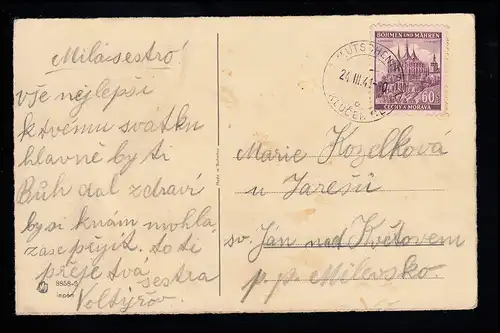 Milá sestro!
vše nejlepší
k tvému svátku
hlavně by ti
Bůh dal zdraví
by si k nám mohla
zase přijít. to ti
přeje tvá
sestra
Voltýřov.
8858-5
Import
BÖHMEN UND MÄHREN
60
ČECHY A MORAVA
24.III.41
Marie Kozelková
u Jarešů
sv. Ján nad Květovem
p. p. Milevsko.